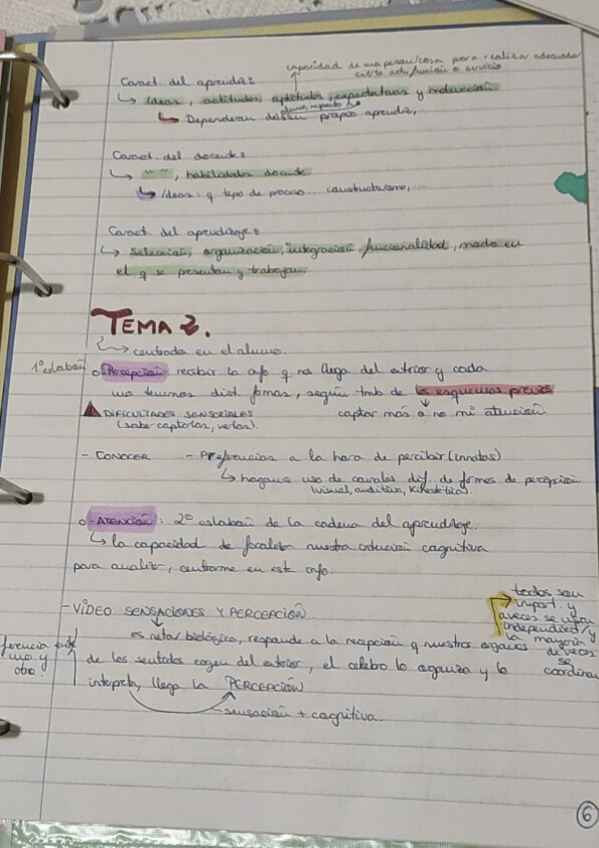 capacidad de una persona/cosa para realizar adecuada
cierta act., función o servicio
Caract. del aprendiz
↳ Ideas, actitudes, aptitudes, expectativas y motivación.
↳ Dependerán del propio aprendiz,
Caract. del docente
↳ " ", habilidades docente
↳ Ideas: q tipo de proceso constructivismo,...
Caract. del aprendizaje
↳ Selección, organización, integración, funcionalidad, modo en
el q se presentan y trabajan
TEMA 2.
↳ centrada en el alumno.
1º eslabón
o Percepción recibir la info q nos llega del exterior y cada
uno tenemos dist. formas, según tmb de los esquemas previos
DIFICULTADES SENSORIALES
captar más o no mi atención
(saber captarlas, verlas).
- CONOCER - Preferencias a la hora de percibir (innatos)
↳ hagamos uso de canales dif. de formas de percepción
(visual, auditiva, kinestética).
o - ATENCIÓN: 2º eslabón de la cadena del aprendizaje.
↳ la capacidad de focalizar nuestra intención cognitiva
para analizar, centrarme en esta info.
todos son
import. y
a veces se usan
independient. y
la mayoría
de veces
se
coordinan
- VÍDEO SENSACIONES Y PERCEPCIÓN.
es neta/ biológico, responde a la recepción q nuestros órganos
ferencia entre
uno y
otro
de los sentidos cogen del exterior, el celebro lo organiza y lo
interpreta, llega la PERCEPCIÓN
sensación + cognitiva.
6